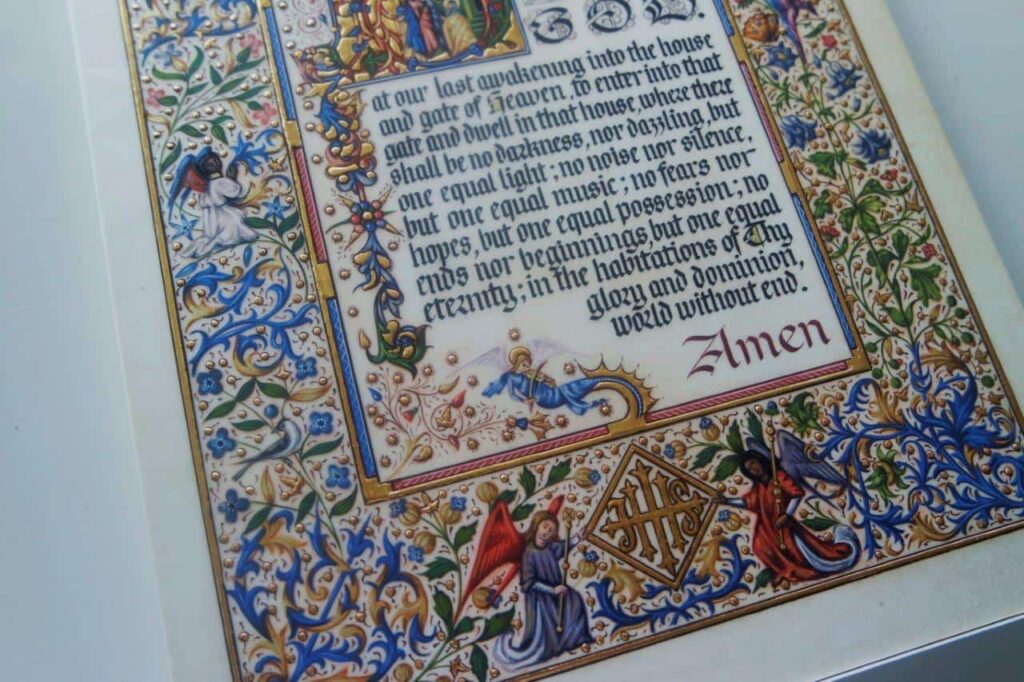 GOD.
at our last awakening into the house
and gate of Heaven, to enter into that
gate and dwell in that house, where there
shall be no darkness, nor dazzling, but
one equal light; no noise nor silence,
but one equal music; no fears nor
hopes, but one equal possession; no
ends nor beginnings, but one equal
eternity; in the habitations of Thy
glory and dominion,
world without end.
Amen
IHS